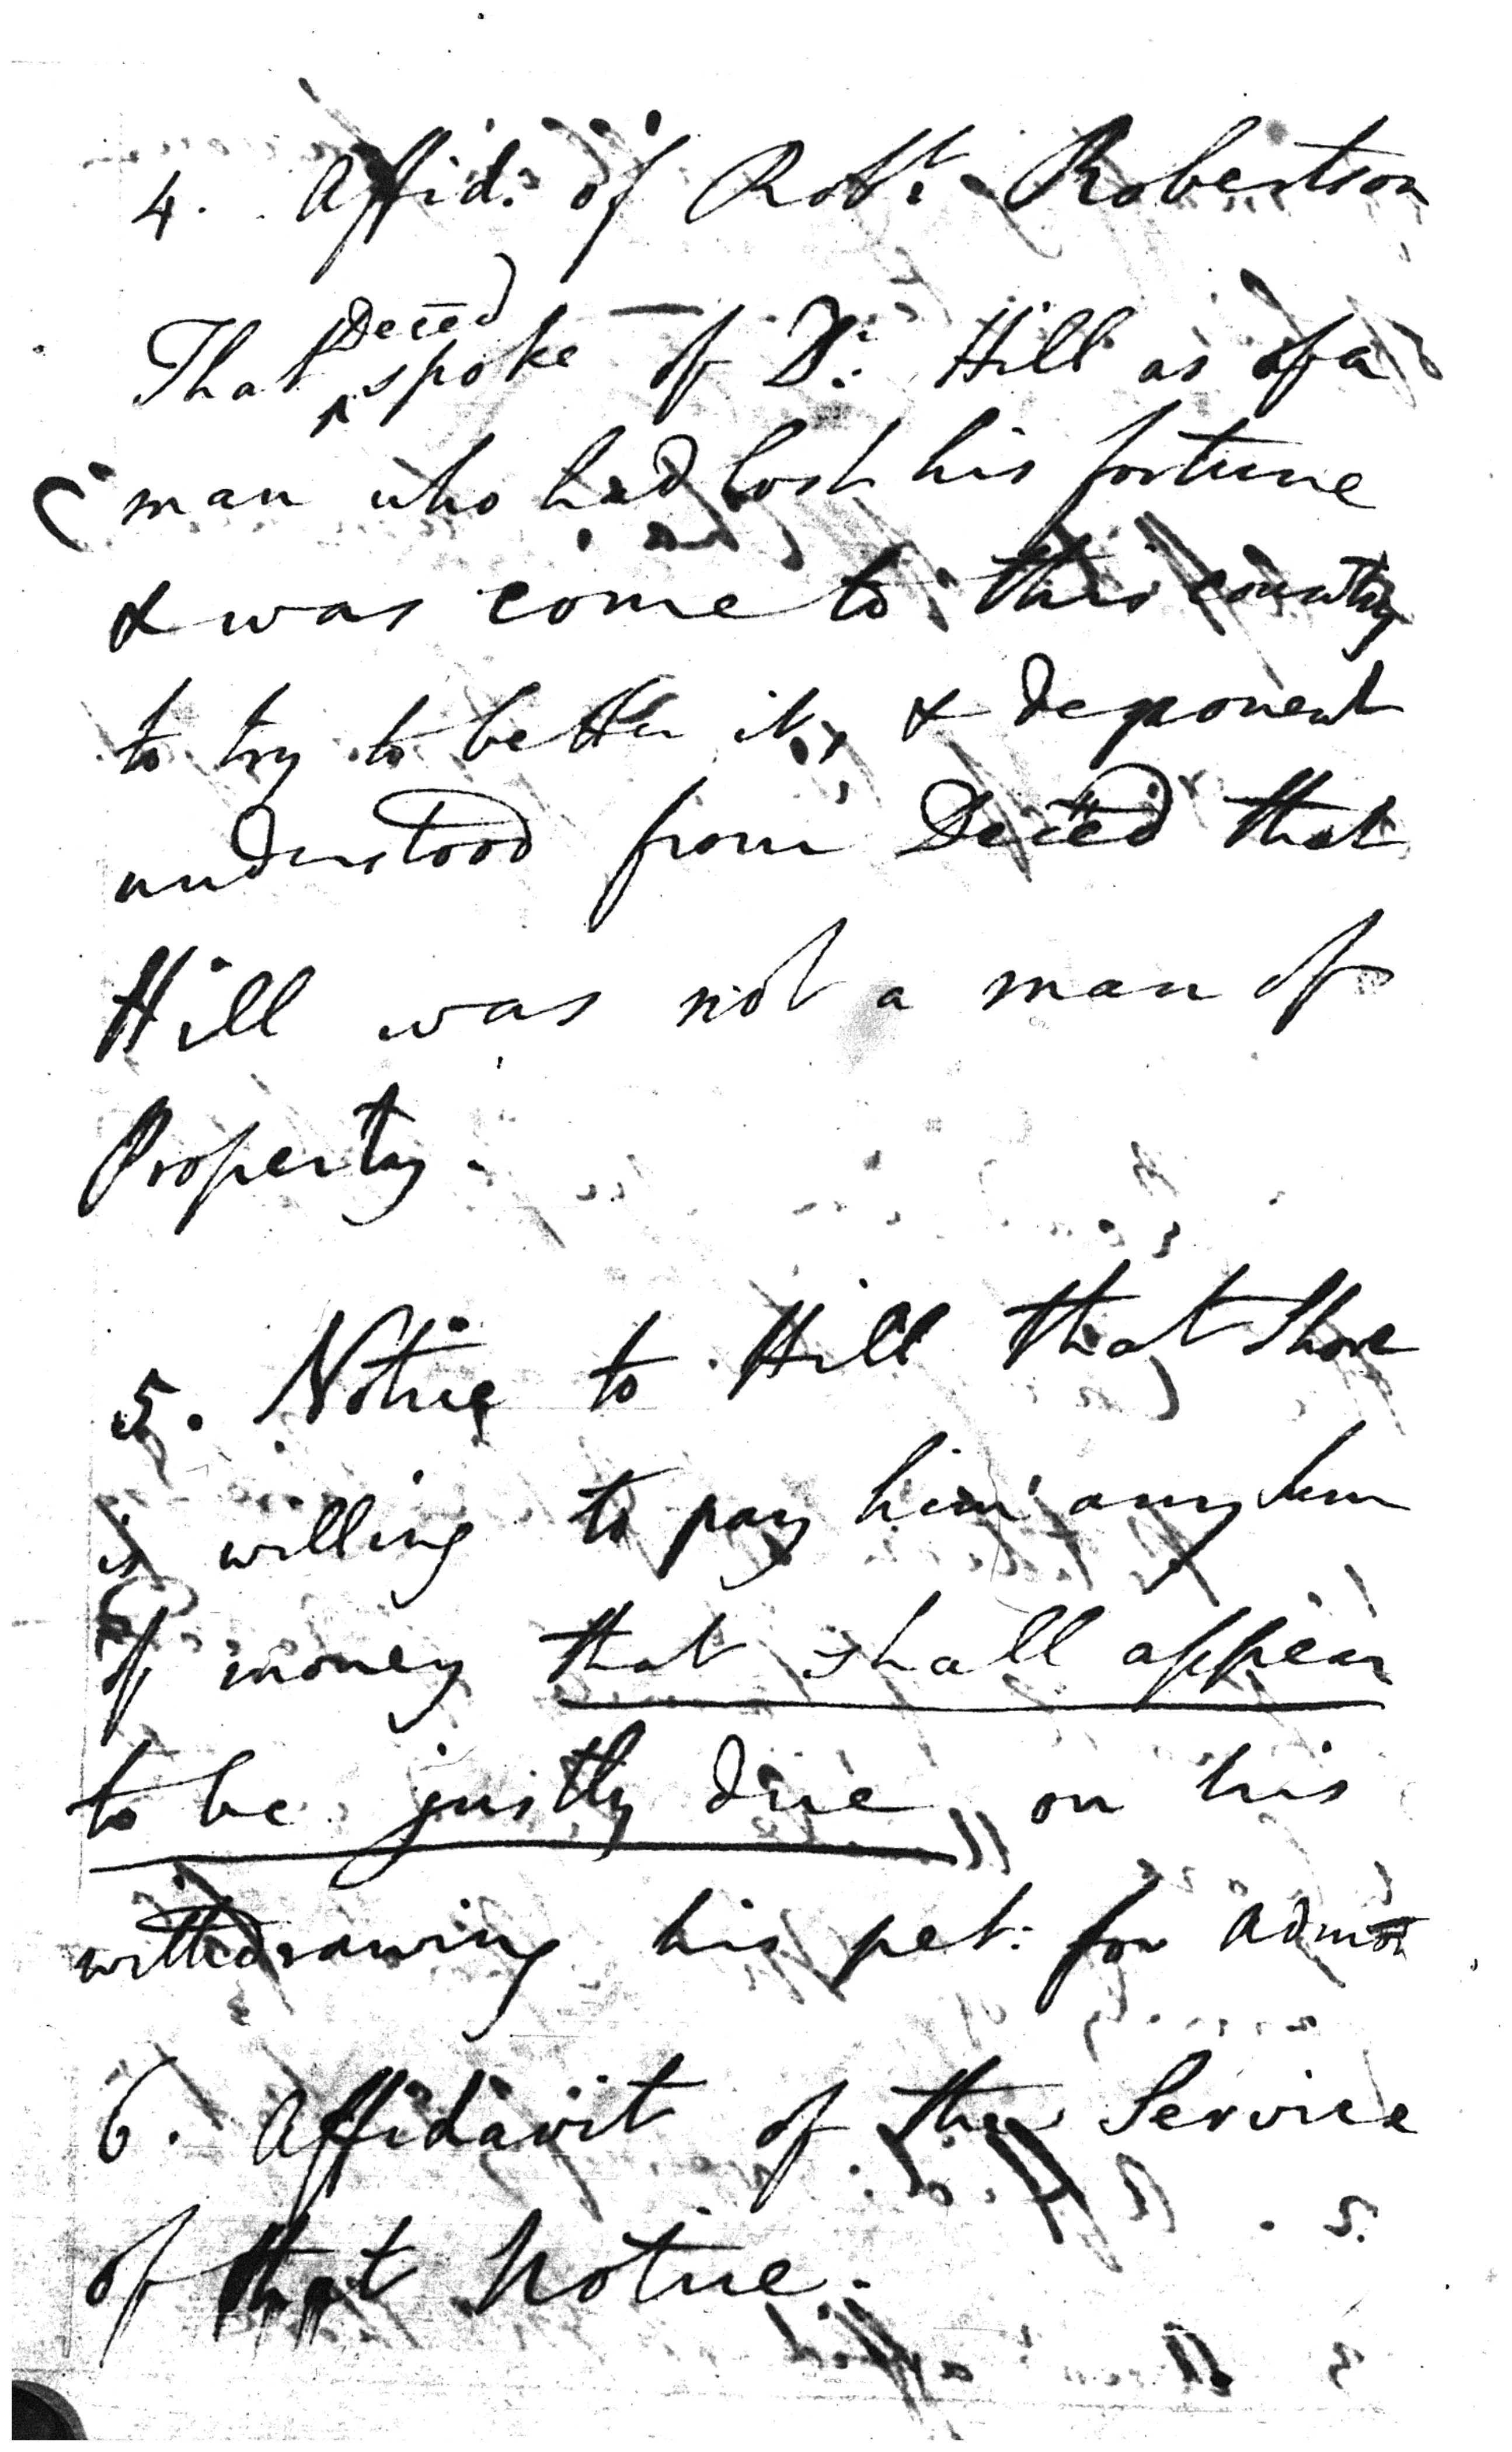 4. Affid: of Robt. Robertson
That Deced spoke of Dr: Hill as of a
man who had lost his fortune
& was come to this country
to try to better it, & deponent
understood from Deced that
Hill was not a man of
Property.
5. Notice to Hill that Shore
is willing to pay him any sum
of money that shall appear
to be justly due on his
withdrawing his pet: for admon
6. Affidavit of the Service
of that Notice.